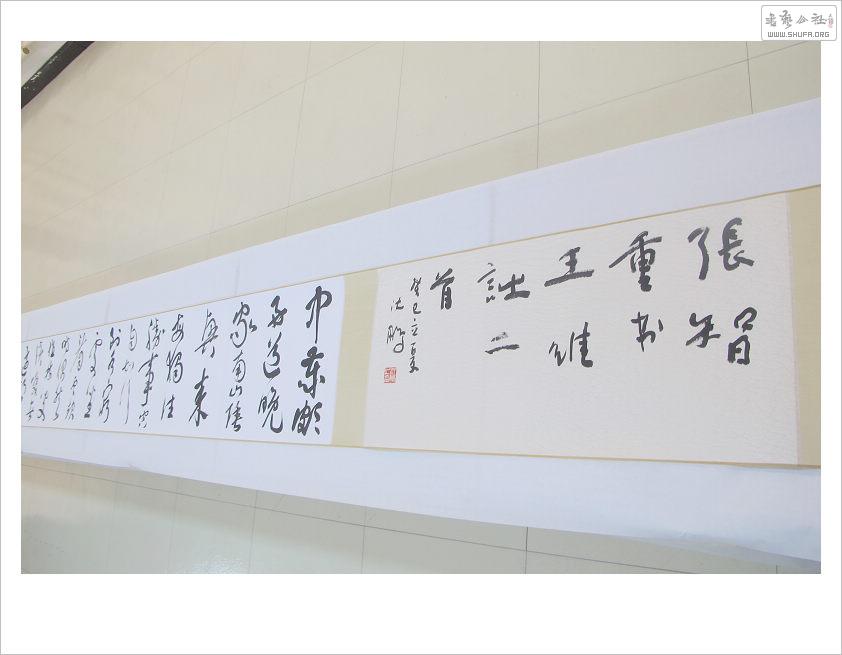 书艺公社
WWW.SHUFA.ORG
張智
重书
王維
詩二
首
癸巳立夏
沈鵬
中歲頗
好道晚
家南山陲
興來
每獨往
勝事空
自知行
到水窮
處坐
看雲起
時偶然
值林叟